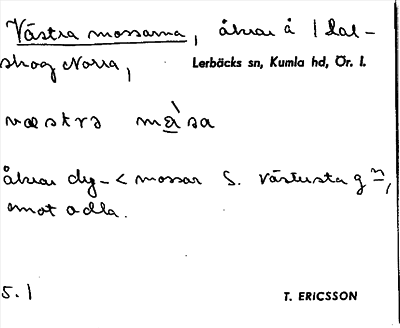 Västra mossarna, åkrar å 1 Dal-
skog Norra, Lerbäcks sn, Kumla hd, Ör. l.
væstrə måsa
åkrar dy-< mossar S. västusta g n,
emot adla.
5.1 T. ERICSSON